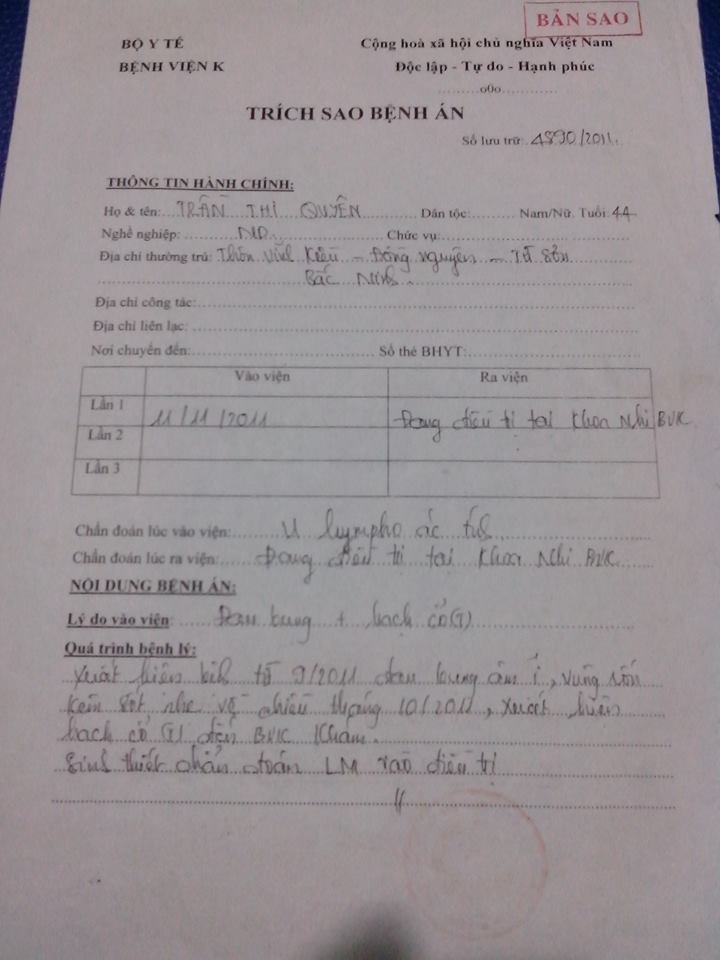 BẢN SAO
BỘ Y TẾ
BỆNH VIỆN K
Cộng hoà xã hội chủ nghĩa Việt Nam
Độc lập - Tự do - Hạnh phúc
.........o0o............
TRÍCH SAO BỆNH ÁN
Số lưu trữ: 4890/2011.
THÔNG TIN HÀNH CHÍNH:
Họ & tên: TRẦN THỊ QUYÊN Dân tộc:.......... Nam/Nữ. Tuổi: 44
Nghề nghiệp: ND. Chức vụ:
Địa chỉ thường trú: Thôn Vĩnh Kiều - Đồng Nguyên - Từ Sơn
Bắc Ninh.
Địa chỉ công tác:
Địa chỉ liên lạc:
Nơi chuyển đến: Số thẻ BHYT:
Vào viện Ra viện
Lần 1 11/11/2011 Đang điều trị tại Khoa Nhi BVK
Lần 2
Lần 3
Chẩn đoán lúc vào viện: U lympho ác tính
Chẩn đoán lúc ra viện: Đang điều trị tại Khoa Nhi BVK
NỘI DUNG BỆNH ÁN:
Lý do vào viện: Đau bụng + hạch cổ (T)
Quá trình bệnh lý:
Xuất hiện bệnh từ 9/2011 đau bụng âm ỉ, vùng rốn
kèm sốt nhẹ về chiều tháng 10/2011, xuất hiện
hạch cổ (T) đến BVK khám.
Sinh thiết chẩn đoán LM vào điều trị